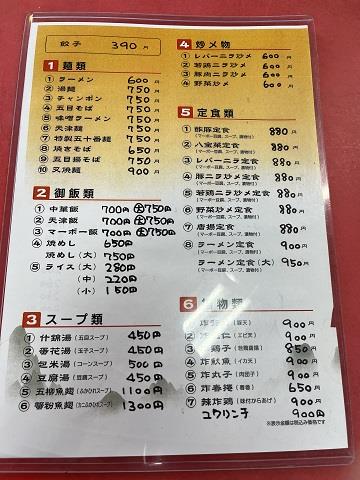 餃子 390円
1 麺類
① ラーメン 600円
② 湯麺 750円
③ チャンポン 750円
④ 五目そば 750円
⑤ 味噌ラーメン 750円
⑥ 天津麺 750円
⑦ 特製五十番麺 750円
⑧ 焼きそば 650円
⑨ 五目揚そば 750円
⑩ 叉焼麺 900円
2 御飯類
① 中華飯 700円 750円
② 天津飯 700円 750円
③ マーボー飯 700円 750円
④ 焼めし 650円
焼めし(大) 750円
⑤ ライス(大) 280円
(中) 220円
(小) 150円
3 スープ類
① 什錦湯(五目スープ) 450円
② 蛋花湯(玉子スープ) 450円
③ 包米湯(コーンスープ) 500円
④ 豆腐湯(豆腐スープ) 450円
⑤ 五柳魚翅(ふかひれスープ) 1100円
⑥ 蟹粉魚翅(カニふかひれスープ) 1300円
4 炒メ物
① レバーニラ炒メ 600円
② 若鶏ニラ炒メ 600円
③ 豚肉ニラ炒メ 600円
④ 野菜炒メ 600円
5 定食類
① 酢豚定食 880円
(マーボー豆腐、スープ、漬物付)
② 八宝菜定食 880円
(マーボー豆腐、スープ、漬物付)
③ レバーニラ定食 880円
(マーボー豆腐、スープ、漬物付)
④ 豚ニラ炒メ定食 880円
(マーボー豆腐、スープ、漬物付)
⑤ 若鶏ニラ炒メ定食 880円
(マーボー豆腐、スープ、漬物付)
⑥ 野菜炒メ定食 880円
(マーボー豆腐、スープ、漬物付)
⑦ 唐揚定食 880円
(マーボー豆腐、スープ、漬物付)
⑧ ラーメン定食 900円
(マーボー豆腐、ライス、漬物付)
ラーメン定食(大) 950円
6 物類
(豚天) 900円
(エビ天) 900円
鶏子(若鶏唐揚) 850円
④ 炸魷魚(イカ天) 900円
⑤ 炸丸子(肉団子) 900円
⑥ 炸春捲(春巻) 650円
⑦ 辣炸鶏(味付からあげ) 900円
ユウリン子 900円
※表示金額は税込み価格です